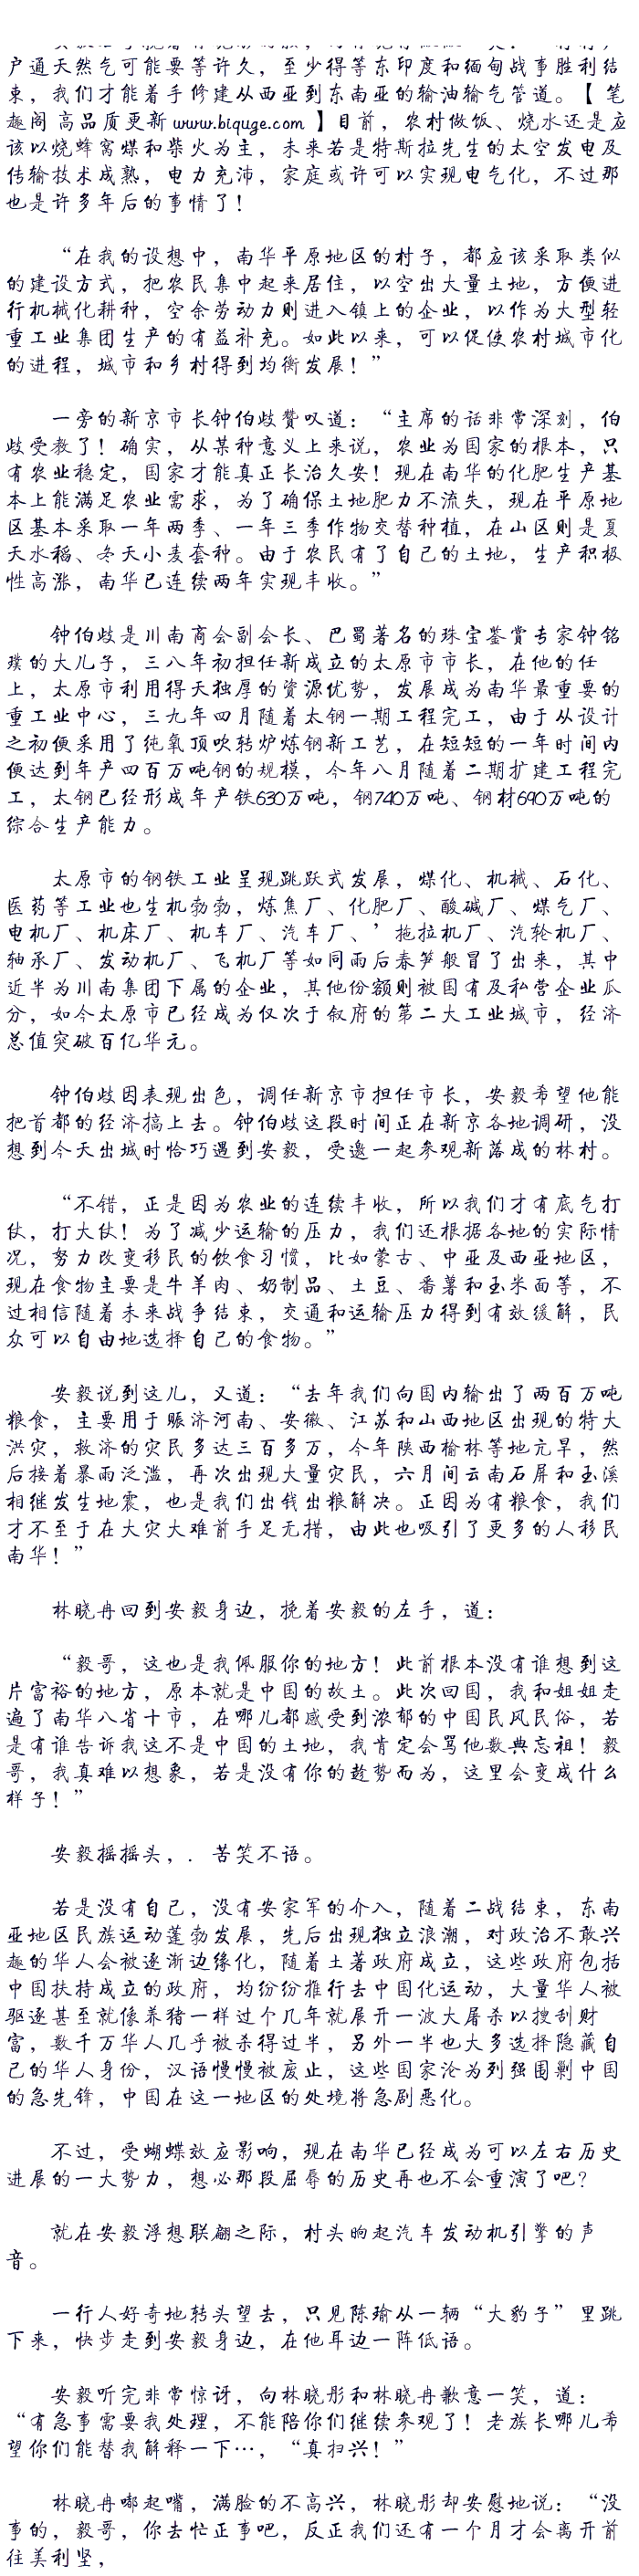 户通天然气可能要等许久，至少得等东印度和缅甸战事胜利结
束，我们才能着手修建从西亚到东南亚的输油输气管道。【 笔
趣阁 高品质更新 www.biquge.com 】目前，农村做饭、烧水还是应
该以烧蜂窝煤和柴火为主，未来若是特斯拉先生的太空发电及
传输技术成熟，电力充沛，家庭或许可以实现电气化，不过那
也是许多年后的事情了！
“在我的设想中，南华平原地区的村子，都应该采取类似
的建设方式，把农民集中起来居住，以空出大量土地，方便进
行机械化耕种，空余劳动力则进入镇上的企业，以作为大型轻
重工业集团生产的有益补充。如此以来，可以促使农村城市化
的进程，城市和乡村得到均衡发展！”
一旁的新京市长钟伯歧赞叹道：“主席的话非常深刻，伯
歧受教了！确实，从某种意义上来说，农业为国家的根本，只
有农业稳定，国家才能真正长治久安！现在南华的化肥生产基
本上能满足农业需求，为了确保土地肥力不流失，现在平原地
区基本采取一年两季、一年三季作物交替种植，在山区则是夏
天水稻、冬天小麦套种。由于农民有了自己的土地，生产积极
性高涨，南华已连续两年实现丰收。”
钟伯歧是川南商会副会长、巴蜀著名的珠宝鉴赏专家钟铭
璞的大儿子，三八年初担任新成立的太原市市长，在他的任
上，太原市利用得天独厚的资源优势，发展成为南华最重要的
重工业中心，三九年四月随着太钢一期工程完工，由于从设计
之初便采用了纯氧顶吹转炉炼钢新工艺，在短短的一年时间内
便达到年产四百万吨钢的规模，今年八月随着二期扩建工程完
工，太钢已经形成年产铁630万吨，钢740万吨、钢材690万吨的
综合生产能力。
太原市的钢铁工业呈现跳跃式发展，煤化、机械、石化、
医药等工业也生机勃勃，炼焦厂、化肥厂、酸碱厂、煤气厂、
电机厂、机床厂、机车厂、汽车厂、’拖拉机厂、汽轮机厂、
轴承厂、发动机厂、飞机厂等如同雨后春笋般冒了出来，其中
近半为川南集团下属的企业，其他份额则被国有及私营企业瓜
分，如今太原市已经成为仅次于叙府的第二大工业城市，经济
总值突破百亿华元。
钟伯歧因表现出色，调任新京市担任市长，安毅希望他能
把首都的经济搞上去。钟伯歧这段时间正在新京各地调研，没
想到今天出城时恰巧遇到安毅，受邀一起参观新落成的林村。
“不错，正是因为农业的连续丰收，所以我们才有底气打
仗，打大仗！为了减少运输的压力，我们还根据各地的实际情
况，努力改变移民的饮食习惯，比如蒙古、中亚及西亚地区，
现在食物主要是牛羊肉、奶制品、土豆、番薯和玉米面等，不
过相信随着未来战争结束，交通和运输压力得到有效缓解，民
众可以自由地选择自己的食物。”
安毅说到这儿，又道：“去年我们向国内输出了两百万吨
粮食，主要用于赈济河南、安徽、江苏和山西地区出现的特大
洪灾，救济的灾民多达三百多万，今年陕西榆林等地亢旱，然
后接着暴雨泛滥，再次出现大量灾民，六月间云南石屏和玉溪
相继发生地震，也是我们出钱出粮解决。正因为有粮食，我们
才不至于在大灾大难前手足无措，由此也吸引了更多的人移民
南华！”
林晓冉回到安毅身边，挽着安毅的左手，道：
“毅哥，这也是我佩服你的地方！此前根本没有谁想到这
片富裕的地方，原本就是中国的故土。此次回国，我和姐姐走
遍了南华八省十市，在哪儿都感受到浓郁的中国民风民俗，若
是有谁告诉我这不是中国的土地，我肯定会骂他数典忘祖！毅
哥，我真难以想象，若是没有你的趁势而为，这里会变成什么
样子！”
安毅摇摇头，．苦笑不语。
若是没有自己，没有安家军的介入，随着二战结束，东南
亚地区民族运动蓬勃发展，先后出现独立浪潮，对政治不敢兴
趣的华人会被逐渐边缘化，随着土著政府成立，这些政府包括
中国扶持成立的政府，均纷纷推行去中国化运动，大量华人被
驱逐甚至就像养猪一样过个几年就展开一波大屠杀以搜刮财
富，数千万华人几乎被杀得过半，另外一半也大多选择隐藏自
己的华人身份，汉语慢慢被废止，这些国家沦为列强围剿中国
的急先锋，中国在这一地区的处境将急剧恶化。
不过，受蝴蝶效应影响，现在南华已经成为可以左右历史
进展的一大势力，想必那段屈辱的历史再也不会重演了吧？
就在安毅浮想联翩之际，村头响起汽车发动机引擎的声
音。
一行人好奇地转头望去，只见陈瑜从一辆“大豹子”里跳
下来，快步走到安毅身边，在他耳边一阵低语。
安毅听完非常惊讶，向林晓彤和林晓冉歉意一笑，道：
“有急事需要我处理，不能陪你们继续参观了！老族长哪儿希
望你们能替我解释一下…，“真扫兴！”
林晓冉嘟起嘴，满脸的不高兴，林晓彤却安慰地说：“没
事的，毅哥，你去忙正事吧，反正我们还有一个月才会离开前
往美利坚，